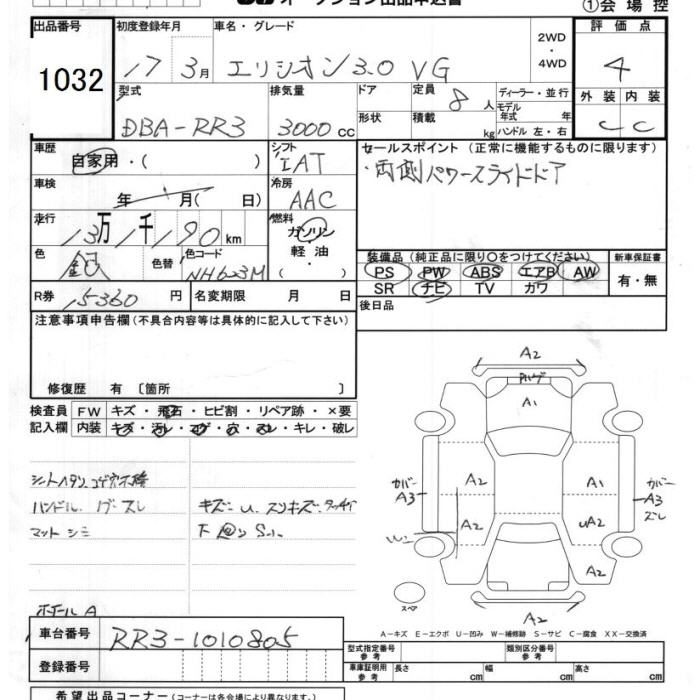 オークション出品申込書
①会場控
出品番号 初度登録年月 車名・グレード 2WD・4WD 評価点
1032
17 3月 エリシオン 3.0 VG 4
型式 排気量 ドア 定員 8人 ディーラー・並行 外装 内装
モデル年式 年
DBA-RR3 3000cc 形状 積載 kg ハンドル 左・右 C C
車歴 シフト セールスポイント (正常に機能するものに限ります)
自家用・( ) IAT ・両側パワースライドドア
車検 冷房
年 月( 日) AAC
走行 燃料
13万1千190km ガソリン・軽油・
色 色替 色コード 装備品 (純正品に限り○をつけてください) 新車保証書
銀 NH623M PS PW ABS エアB AW 有・無
SR ナビ TV カワ
R券 15360円 名変期限 月 日 後日品
注意事項申告欄 (不具合内容等は具体的に記入して下さい)
修復歴 有 〔箇所 〕
検査員記入欄 FW キズ・飛石・ヒビ割・リペア跡・×要
内装 キズ・汚レ・コゲ・穴・スレ・キレ・破レ
ハンドル
マット シミ
ホイールA
A2
A1
A2 A1
カバー A3 カバー A3 ズレ
A2 UA2
A2
スペア
A2
A-キズ E-エクボ U-凹み W-補修跡 S-サビ C-腐食 XX-交換済
車台番号 RR3-1010805
登録番号
型式指定番号 参考 類別区分番号 参考
車庫証明用 参考 長さ cm 幅 cm 高さ cm
希望出品コーナー (コーナーは各会場により異なります)